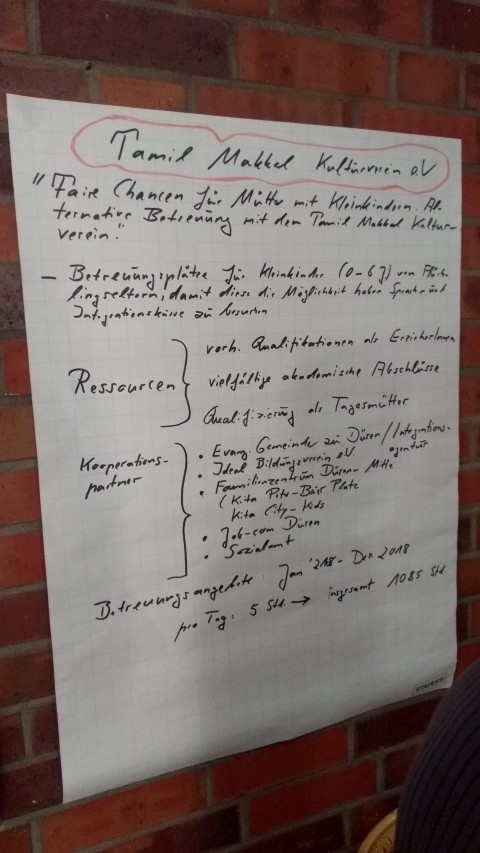 Tamil Makkal Kulturverein e.V
"Faire Chancen für Mütter mit Kleinkindern. Al-
ternative Betreuung mit dem Tamil Makkal Kultur-
verein."
– Betreuungsplätze für Kleinkinder (0-6 J) von Flücht-
lingseltern, damit diese die Möglichkeit haben Sprach- und
Integrationskurse zu besuchen
Ressourcen
vorh. Qualifikationen als ErzieherInnen
vielfältige akademische Abschlüsse
Qualifizierung als Tagesmütter
Kooperations-
partner
• Evang. Gemeinde zu Düren / Integrations-
agentur
• Ideal Bildungsverein e.V.
• Familienzentrum Düren-Mitte
(Kita Plate
Kita City-Kids
• Job-com Düren
• Sozialamt
Betreuungsangebote: Jan - Dez 2018
pro Tag: 5 Std. → insgesamt 1085 Std